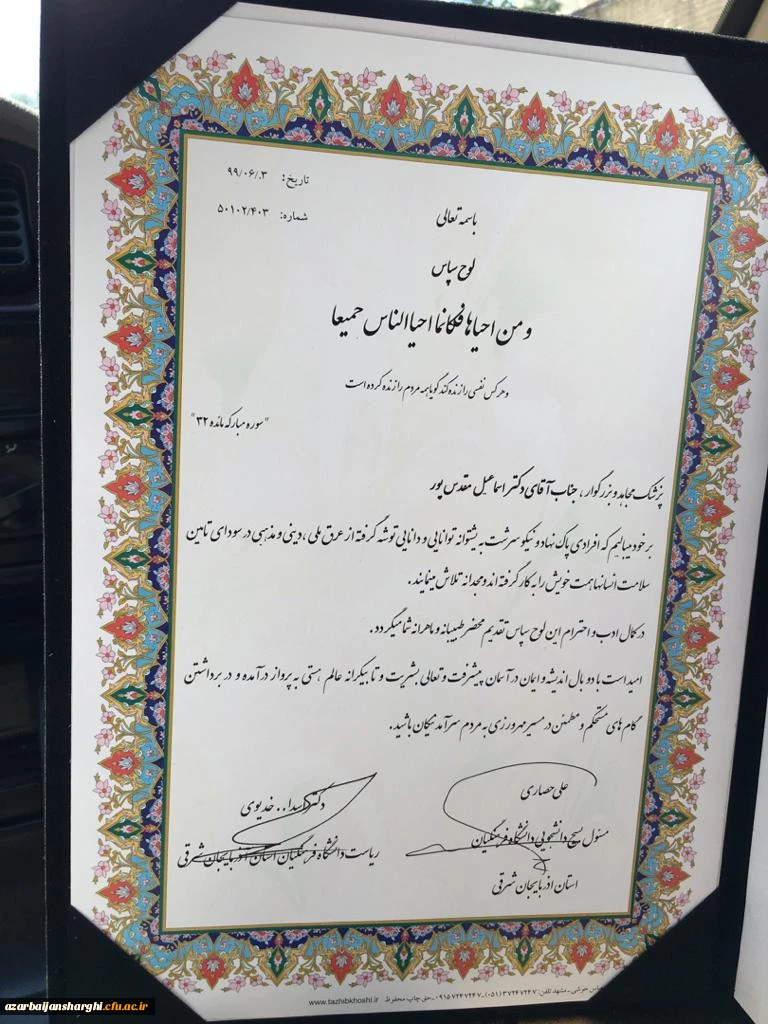 تاریخ: ۹۹/۰۶/۰۳
شماره: ۵۰۱۰۲/۴۰۳
باسمه تعالی
لوح سپاس
و من احیاها فکانما احیا الناس جمیعا
و هر کس نفسی را زنده کند گویا همه مردم را زنده کرده است
"سوره مبارکه مائده ۳۲"
پزشک مجاهد و بزرگوار، جناب آقای دکتر اسماعیل مقدس پور
بر خود میبالیم که افرادی پاک نهاد و نیکو سرشت به پشتوانه توانایی و دانایی توشه گرفته از عرق ملی، دینی و مذهبی در سودای تامین
سلامت انسانها همت خویش را به کار گرفته اند و مجدانه تلاش مینمایند.
در کمال ادب و احترام این لوح سپاس تقدیم محضر طبیبانه و ماهرانه شما میگردد.
امید است با دو بال اندیشه و ایمان در آسمان پیشرفت و تعالی بشریت و تا بیکرانه عالم هستی به پرواز درآمده و در برداشتن
گام های مستحکم و مطمئن در مسیر مهرورزی به مردم سرآمد نیکان باشید.
علی حصاری
مسئول بسیج دانشجویی دانشگاه فرهنگیان
استان آذربایجان شرقی
دکتر اسدا.. خدیوی
ریاست دانشگاه فرهنگیان استان آذربایجان شرقی
خوشی - مشهد تلفن: ۳۷۲۴۷۲۴۷ (۰۵۱) - ۰۹۱۵۷۲۴۷۲۴۷ - حق چاپ محفوظ www.tazhibkhoshi.ir
azarbaijansharghi.cfu.ac.ir